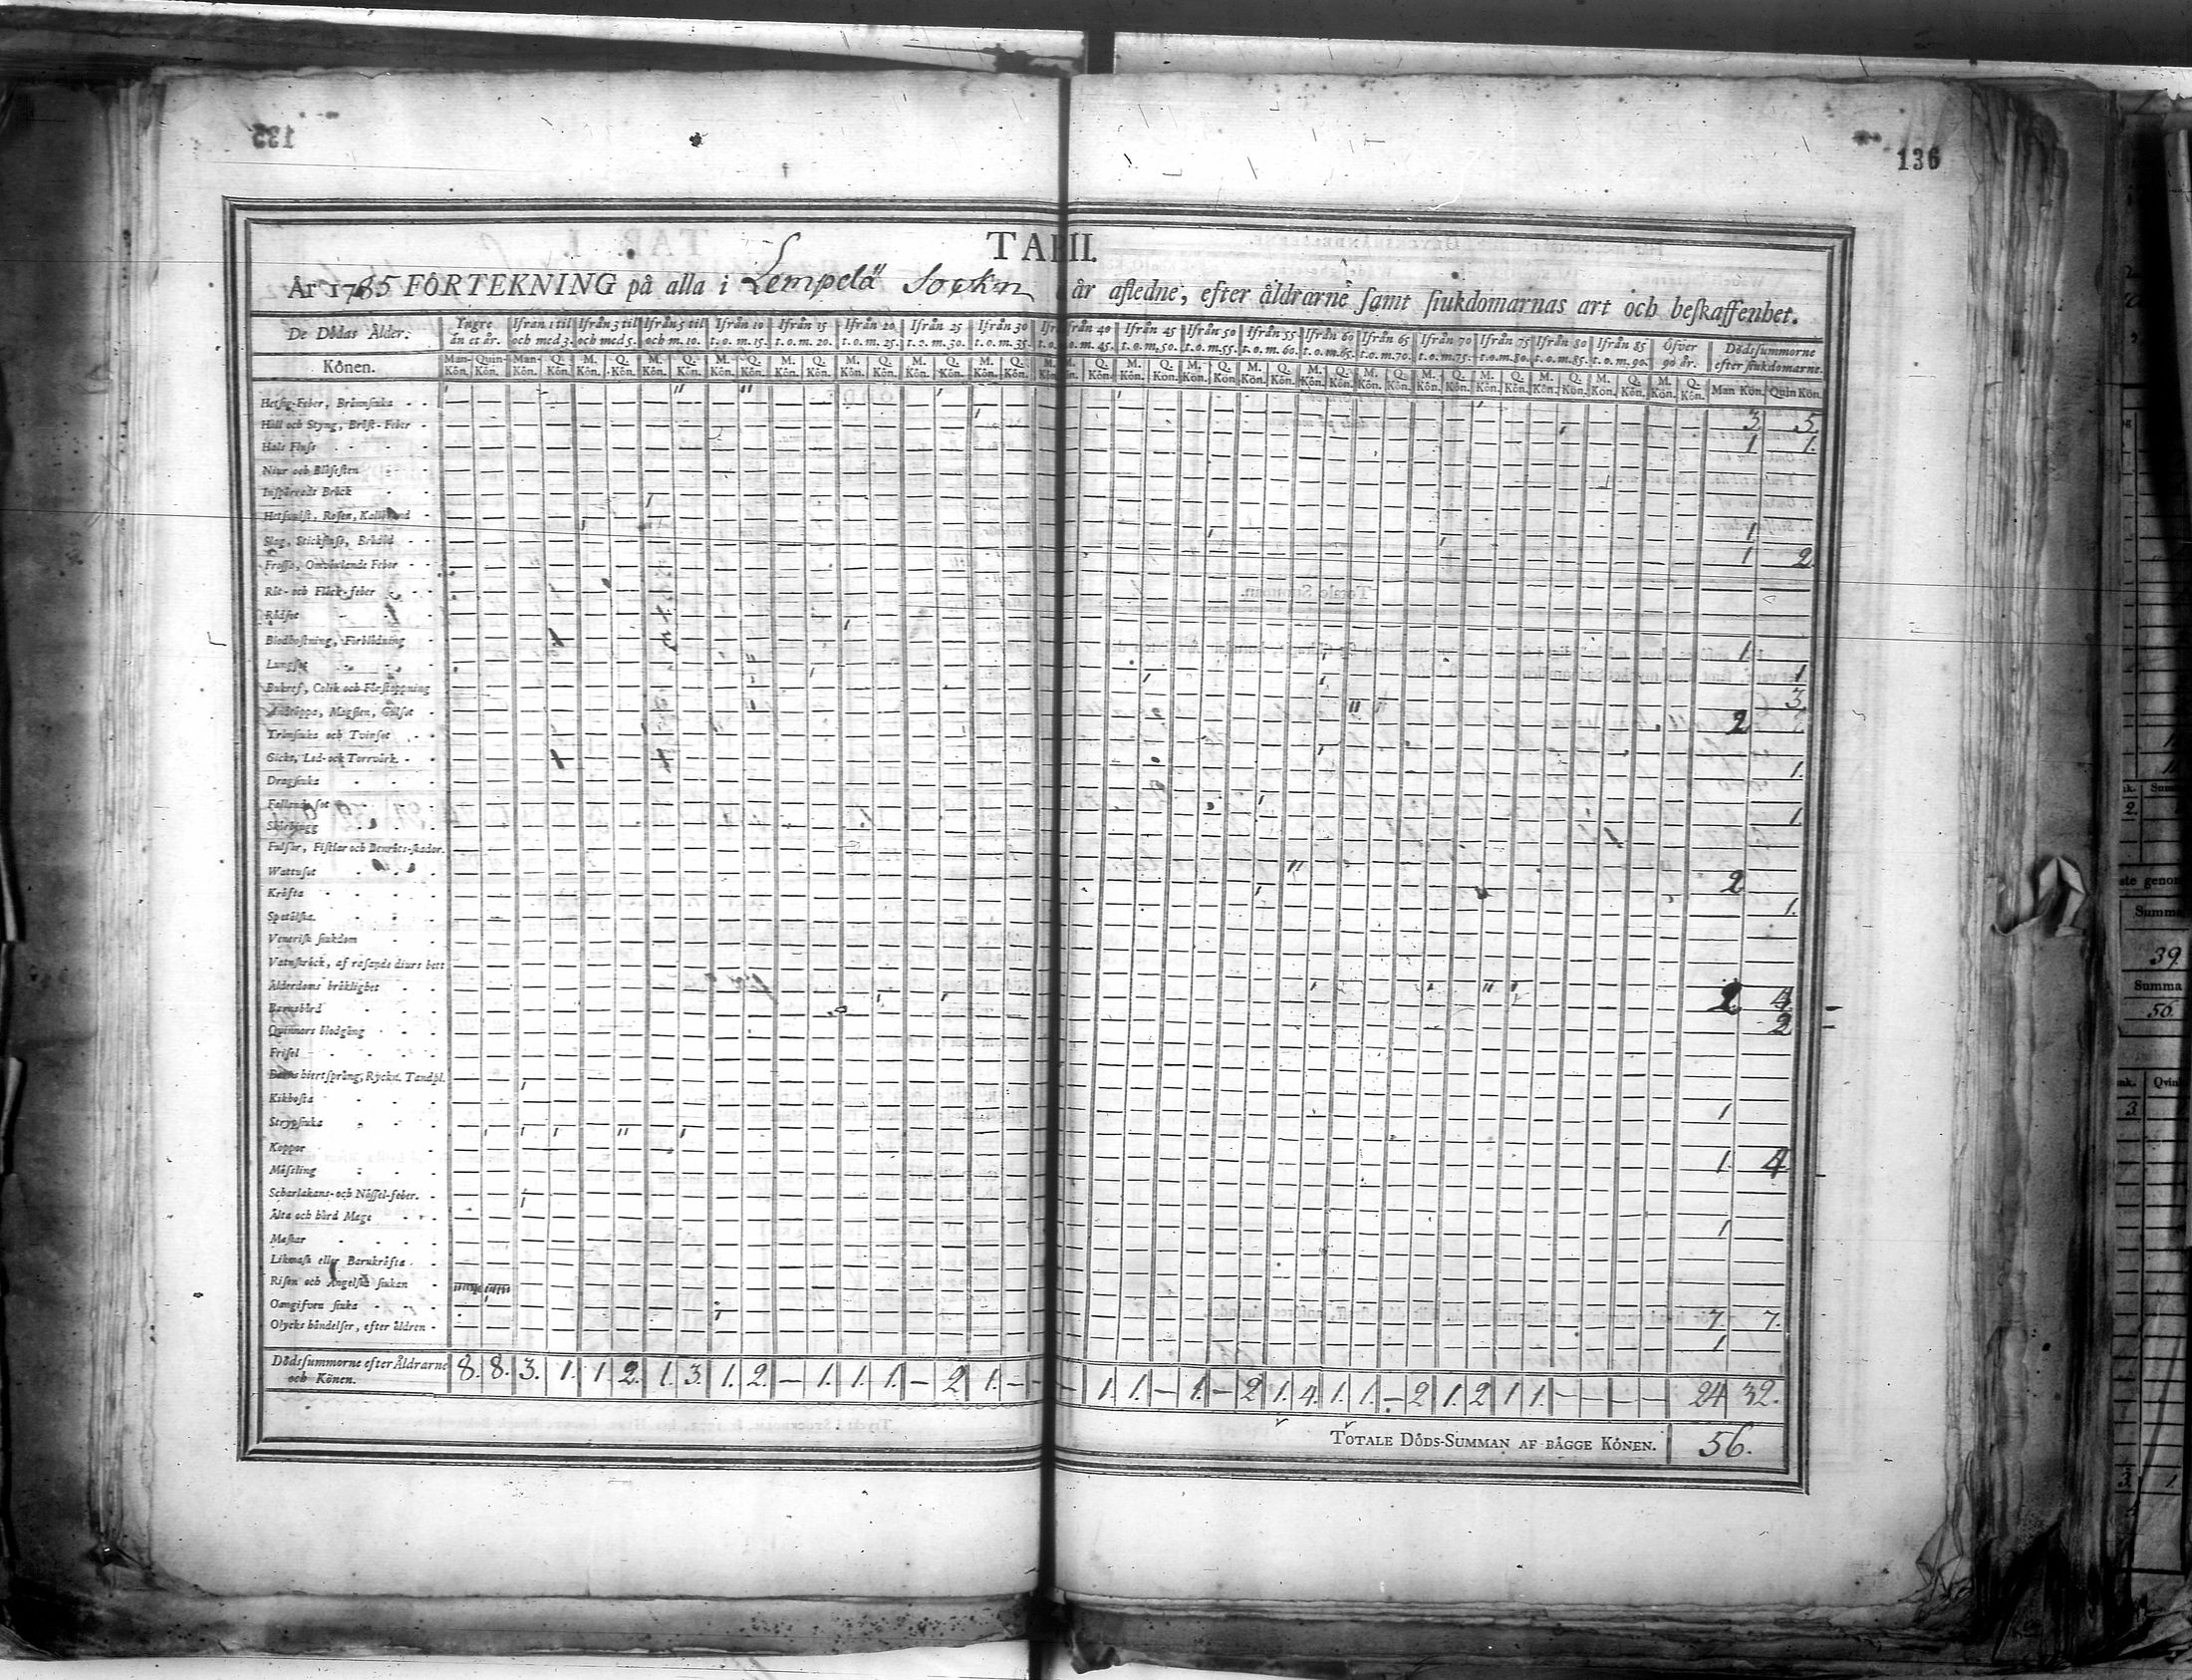 136
TAB. II.
År 1785 FÖRTEKNING på alla i Lempelä Sockn är afledne, efter åldrarne samt siukdomarnas art och beskaffenhet.
De Dödas Ålder. Yngre än et år. Ifrån 1 til och med 3. Ifrån 3 til och med 5. Ifrån 5 til och m. 10. Ifrån 10 t.o.m. 15. Ifrån 15 t.o.m. 20. Ifrån 20 t.o.m. 25. Ifrån 25 t.o.m. 30. Ifrån 30 t.o.m. 35. Ifrån 40 t.o.m. 45. Ifrån 45 t.o.m. 50. Ifrån 50 t.o.m. 55. Ifrån 55 t.o.m. 60. Ifrån 60 t.o.m. 65. Ifrån 65 t.o.m. 70. Ifrån 70 t.o.m. 75. Ifrån 75 t.o.m. 80. Ifrån 80 t.o.m. 85. Ifrån 85 t.o.m. 90. Öfver 90 år. Dödssummorne efter siukdomarne.
Könen. Man-Kön. Quin-Kön. Man-Kön. Q. Kön. M. Kön. Q. Kön. M. Kön. Q. Kön. Man Kön. Quin Kön.
Hetsig-Feber, Brännsiuka 3 5.
Håll och Styng, Bröst-Feber 1 1.
Hals Fluss
Niur och Blåsesten
Inspärradt Bråck
Hetsvulst, Rosen, Kallbrand 1
Slag, Stickfluss, Brådöd 1 2
Frossa, Omväxlande Feber
Röt- och Fläck-feber
Rödsot
Blodhostning, Förblödning 1
Lungsot 1
Bukref, Colik och Förstoppning 3
Andtäppa, Magsten, Gulsot 2
Trånsiuka och Tvinsot
Gickt, Led- och Torrvärk 1.
Dragsiuka
Fallande sot 1.
Skörbjugg
Fulsår, Fistlar och Benröts-skador.
Wattusot 2
Kräfta 1.
Spetälska.
Venerisk siukdom
Vatuskräck, af rasande diurs bett
Ålderdoms bräklighet 2 4.
Barnsbörd 2
Quinnors blodgång
Frisel
Barns hiertsprång, Ryckn. Tandpl.
Kikhosta 1
Strypsiuka
Koppor 1. 4
Mässling
Scharlakans- och Nässel-feber.
Älta och hård Mage 1
Maskar
Likmask eller Barnkräfta
Risen och Ängelska siukan
Oangifven siuka 7. 7.
Olycks händelser, efter åldren 1
Dödssummorne efter Åldrarne och Könen. 8. 8. 3. 1. 1. 2. 1. 3. 1. 2. — 1. 1. 1. — 2 1. — — 1. 1. — 1. — 2 1. 4. 1. 1. — 2 1. 2 1 1. — — — — 24 32.
TOTALE DÖDS-SUMMAN AF BÄGGE KÖNEN. 56.
genom
Summa
39.
Summa
56.
Qvin
3.